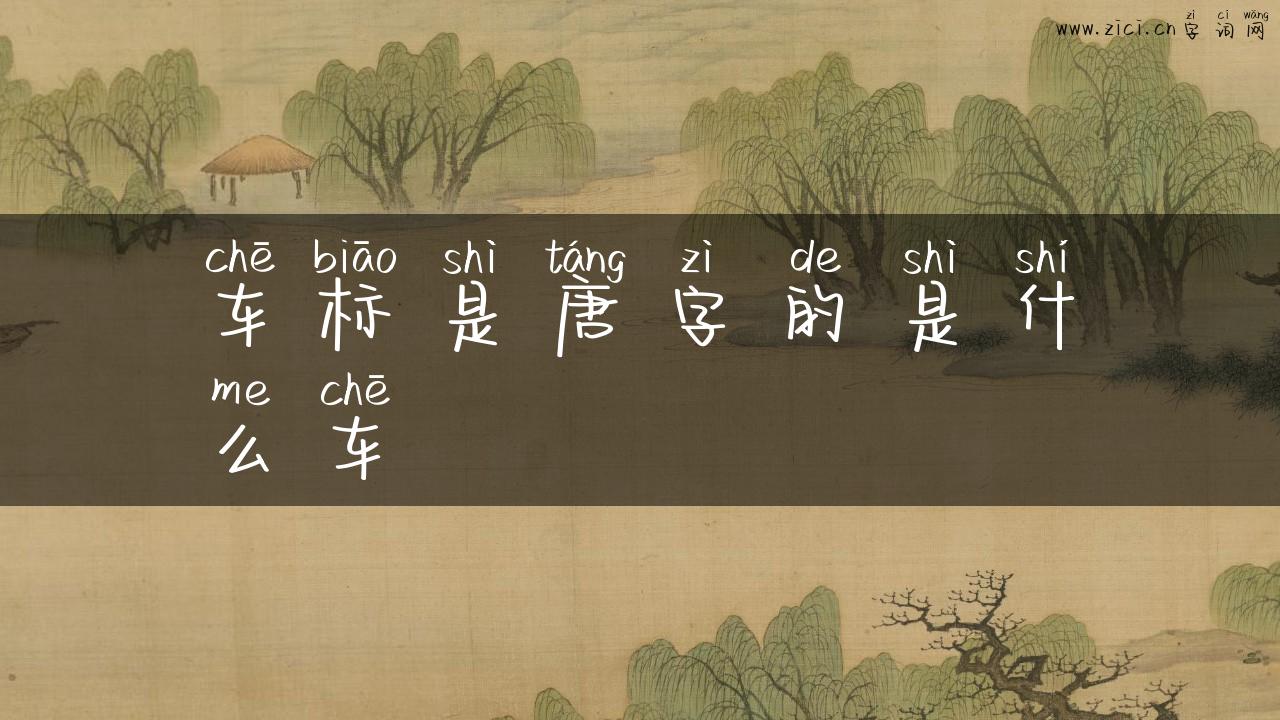 zì cí wǎng
www.zici.cn 字 词 网
chē biāo shì táng zì de shì shí
车 标 是 唐 字 的 是 什
me chē
么 车